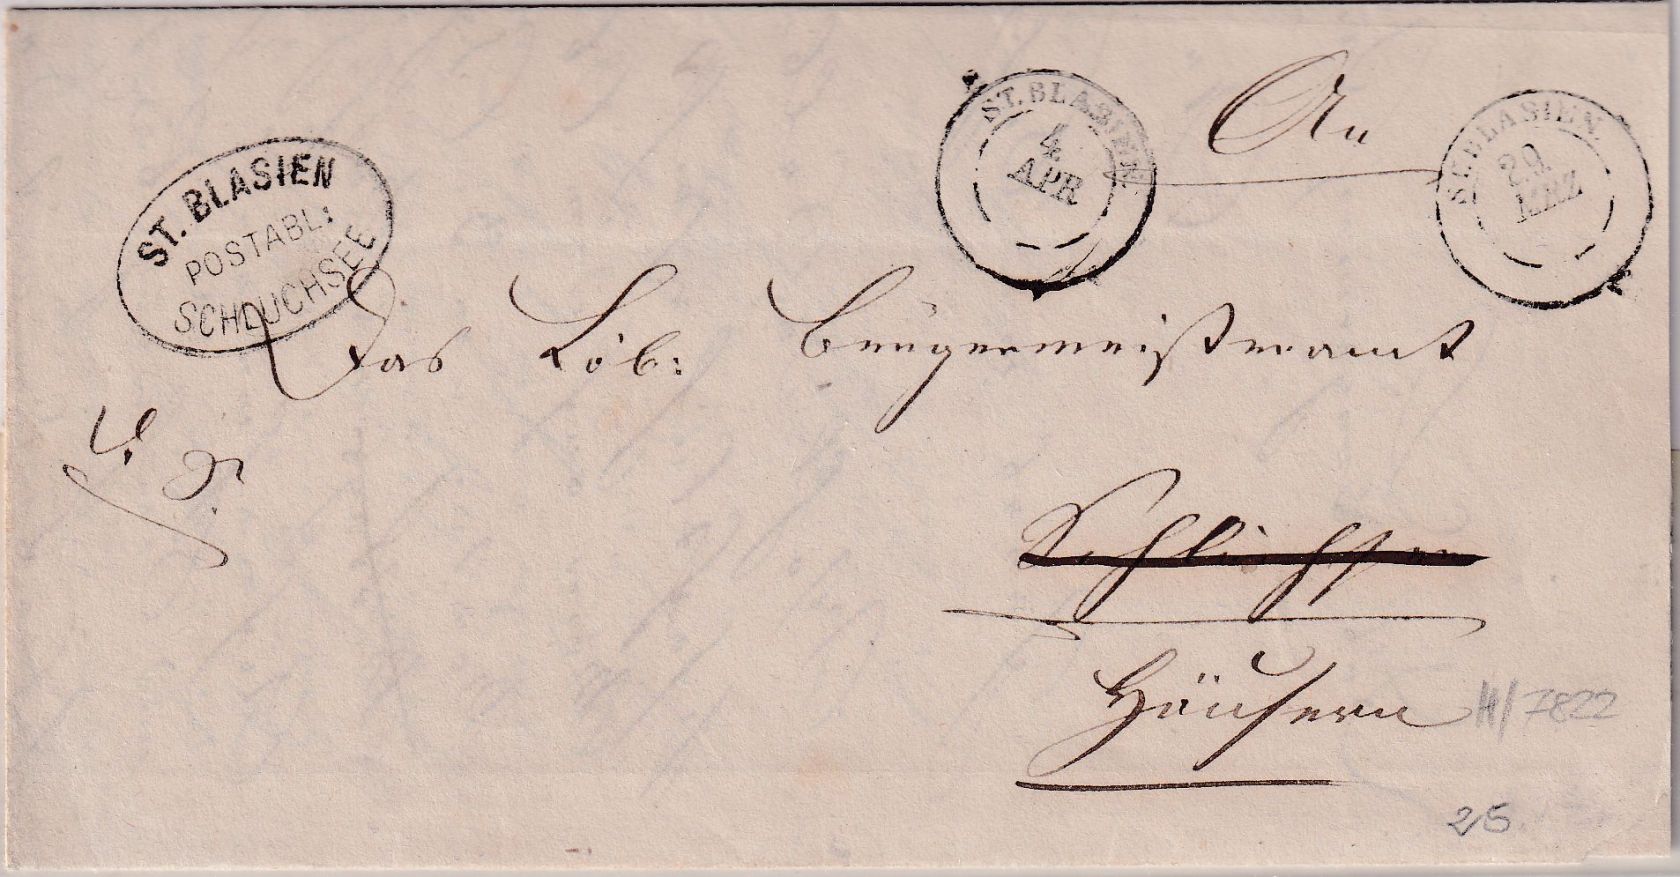 ST. BLASIEN
POSTABL:
SCHLUCHSEE
ST. BLASIEN.
4
APR
An
ST. BLASIEN.
20
MRZ
Das Löb: Bürgermeisteramt
Häusern
H/7822
25